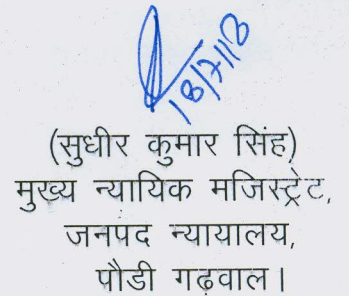 18/7/18
(सुधीर कुमार सिंह)
मुख्य न्यायिक मजिस्ट्रेट,
जनपद न्यायालय,
पौडी गढ़वाल।